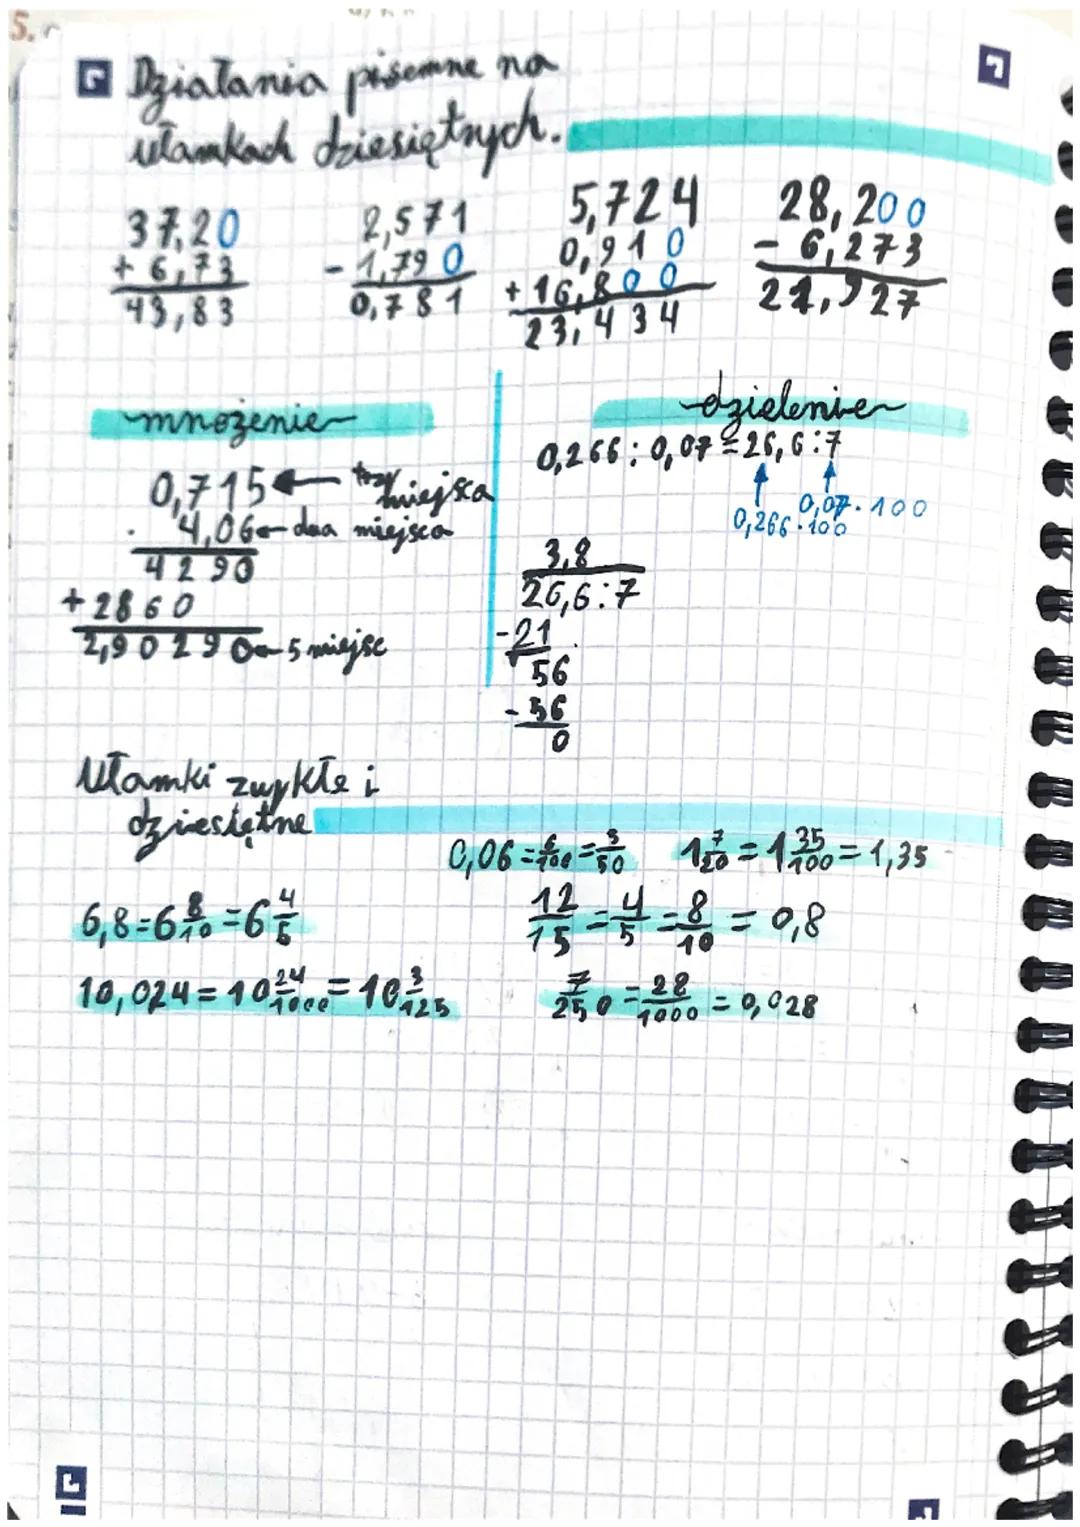 5.
Działania pisemne na
ułamkach dziesiętnych.
37,20
+ 6,73
43,83
2,571
- 1,790
0,781
5,724
0,910
+ 16,800
23,434
28,200
- 6,273
21,927
mnożenie
0,715 ← trzy miejsca
· 4,06 ← dwa miejsca
4290
+ 2860
2,90290 ← 5 miejsc
dzielenie
0,266 : 0,07 = 26,6 : 7
0,266·100 0,07·100
3,8
26,6:7
-21
56
- 56
0
Ułamki zwykłe i
dziesiętne
0,06 = 6/100 = 3/50 1 7/20 = 1 35/100 = 1,35
6,8 = 6 8/10 = 6 4/5 12/15 = 4/5 = 8/10 = 0,8
10,024 = 10 24/1000 = 10 3/125 7/250 = 28/1000 = 0,028